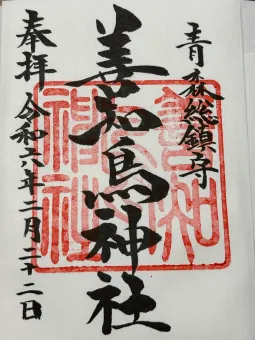 青森総鎮守
善知鳥神社
奉拝
令和六年二月二十二日
善知鳥神社